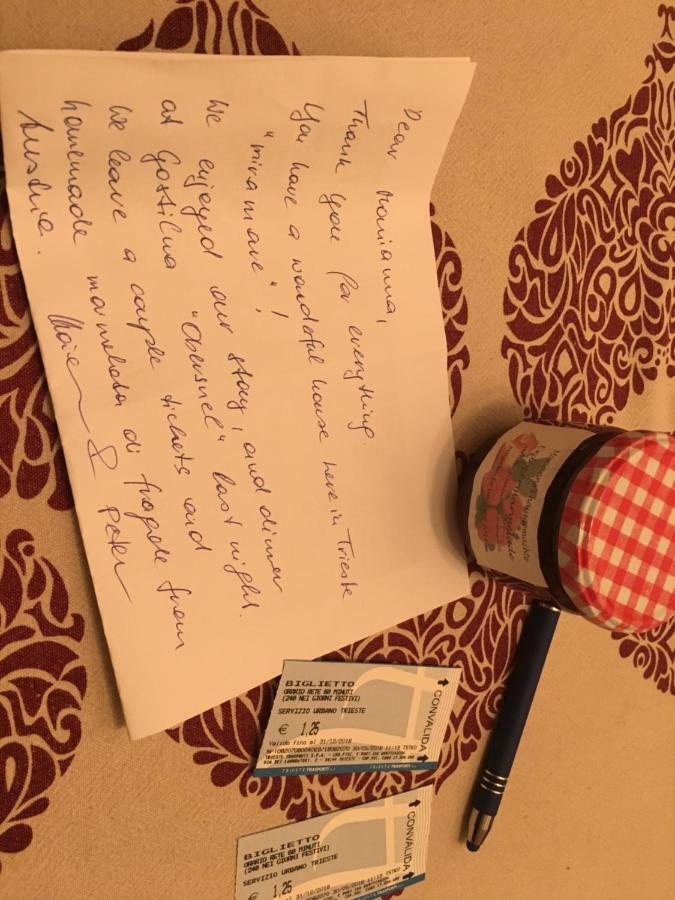 Dear Marianna,
Thank you for everything.
You have a wonderful house here in Trieste
"miramare"!
We enjoyed our stay, and dinner
at Gostilna "Obersnel" last night.
We leave a couple tickets and
homemade marmelata di fragole from
Austria.
& Peter
Marmelade
BIGLIETTO
ORARIO RETE 60 MINUTI
(240 NEI GIORNI FESTIVI)
SERVIZIO URBANO TRIESTE
€ 1,25
Valido fino al 31/12/2018
TRIESTE TRASPORTI
CONVALIDA
BIGLIETTO
ORARIO RETE 60 MINUTI
(240 NEI GIORNI FESTIVI)
SERVIZIO URBANO TRIESTE
€ 1,25
CONVALIDA